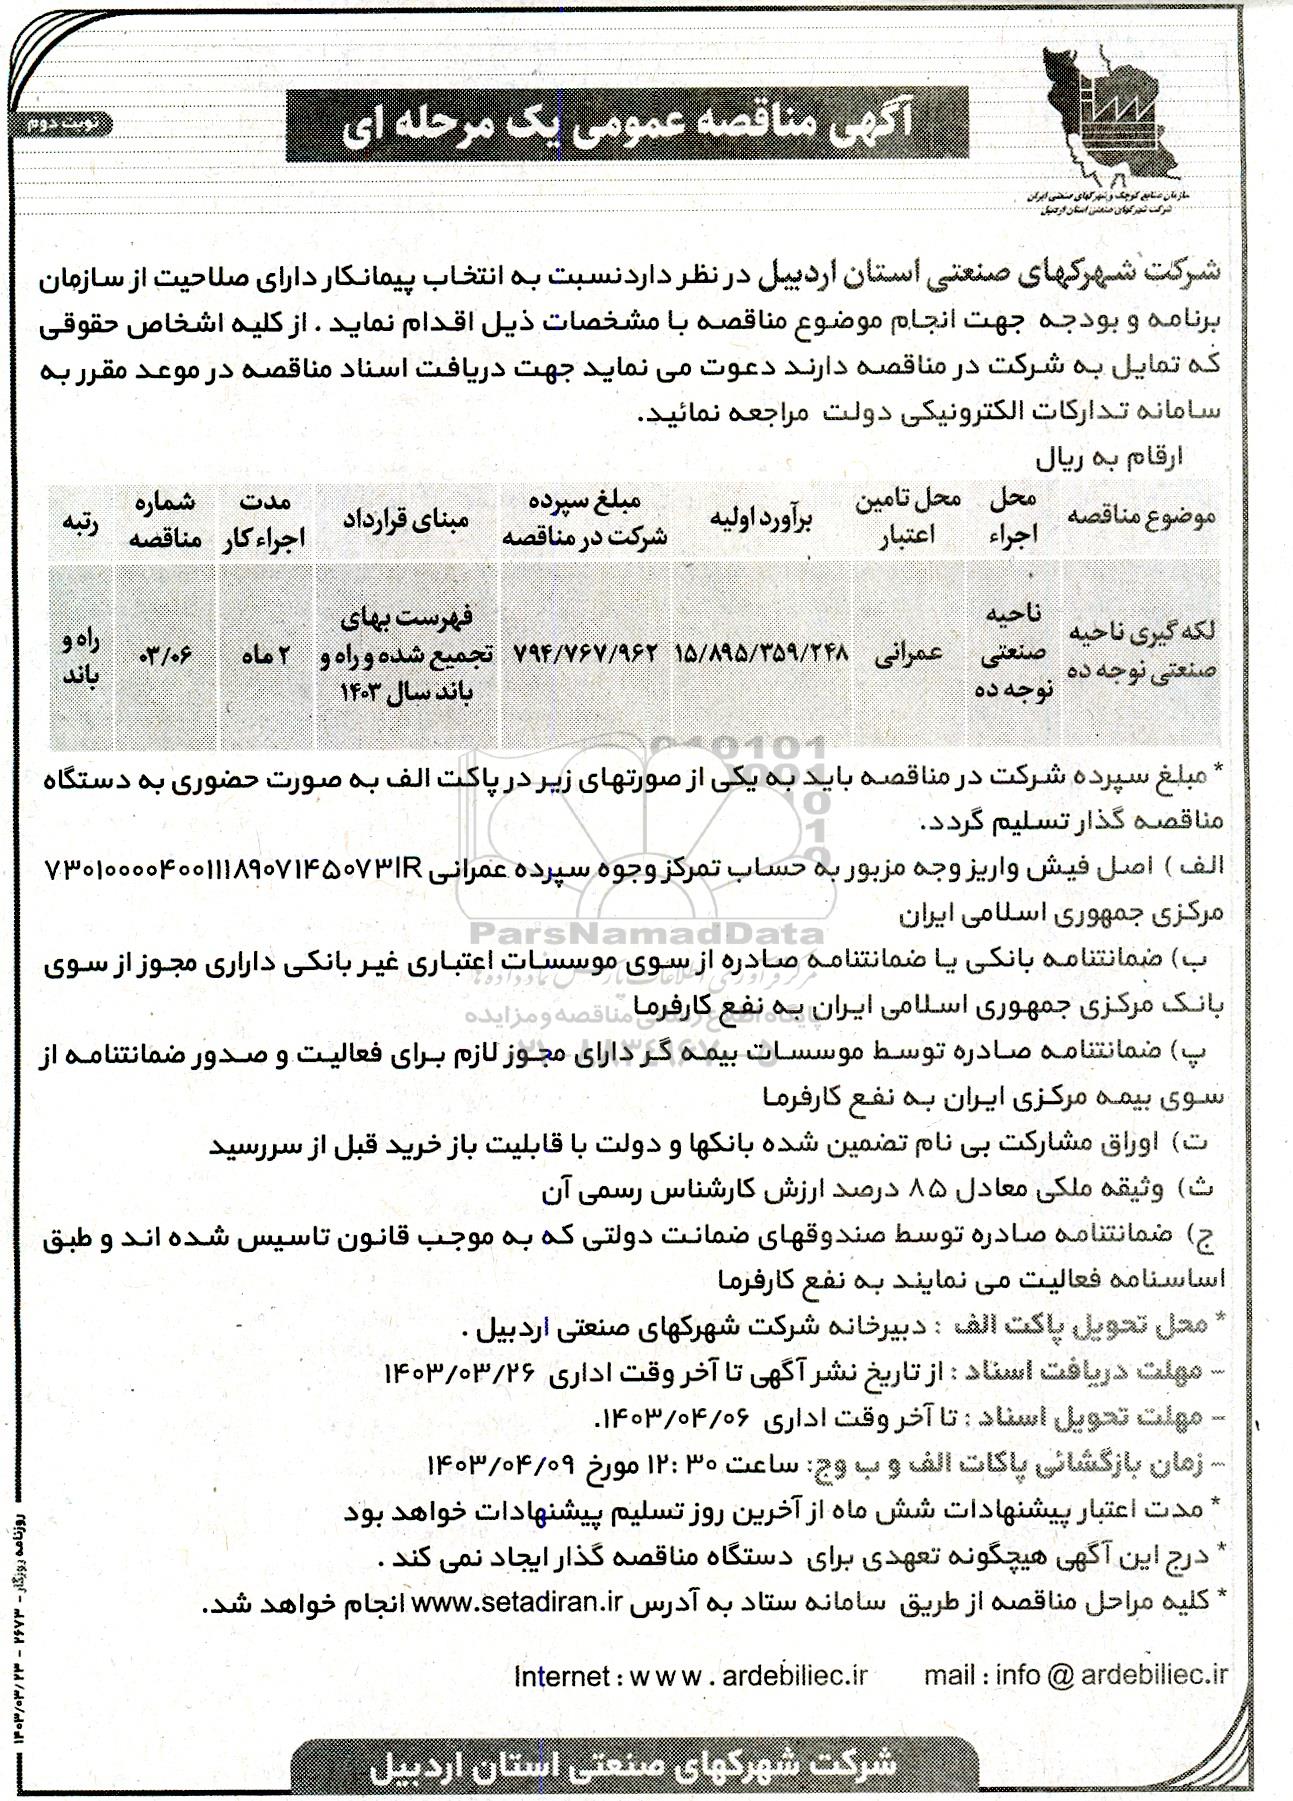 آگهی مناقصه عمومی یک مرحله ای
نوبت دوم
سازمان صنایع کوچک و شهرکهای صنعتی ایران
شرکت شهرکهای صنعتی استان اردبیل
شرکت شهرکهای صنعتی استان اردبیل در نظر داردنسبت به انتخاب پیمانکار دارای صلاحیت از سازمان
برنامه و بودجه جهت انجام موضوع مناقصه با مشخصات ذیل اقدام نماید . از کلیه اشخاص حقوقی
که تمایل به شرکت در مناقصه دارند دعوت می نماید جهت دریافت اسناد مناقصه در موعد مقرر به
سامانه تدارکات الکترونیکی دولت مراجعه نمائید.
ارقام به ریال
موضوع مناقصه | محل اجراء | محل تامین اعتبار | برآورد اولیه | مبلغ سپرده شرکت در مناقصه | مبنای قرارداد | مدت اجراء کار | شماره مناقصه | رتبه
لکه گیری ناحیه صنعتی نوجه ده | ناحیه صنعتی نوجه ده | عمرانی | ۱۵/۸۹۵/۳۵۹/۲۴۸ | ۷۹۴/۷۶۷/۹۶۲ | فهرست بهای تجمیع شده و راه و باند سال ۱۴۰۳ | ۲ ماه | ۰۳/۰۶ | راه و باند
* مبلغ سپرده شرکت در مناقصه باید به یکی از صورتهای زیر در پاکت الف به صورت حضوری به دستگاه
مناقصه گذار تسلیم گردد.
الف ) اصل فیش واریز وجه مزبور به حساب تمرکز وجوه سپرده عمرانی ۷۳۰۱۰۰۰۰۴۰۰۱۱۱۸۹۰۷۱۴۵۰۷۳IR
مرکزی جمهوری اسلامی ایران
ب) ضمانتنامه بانکی یا ضمانتنامه صادره از سوی موسسات اعتباری غیر بانکی داراری مجوز از سوی
بانک مرکزی جمهوری اسلامی ایران به نفع کارفرما
پ) ضمانتنامه صادره توسط موسسات بیمه گر دارای مجوز لازم برای فعالیت و صدور ضمانتنامه از
سوی بیمه مرکزی ایران به نفع کارفرما
ت) اوراق مشارکت بی نام تضمین شده بانکها و دولت با قابلیت باز خرید قبل از سررسید
ث) وثیقه ملکی معادل ۸۵ درصد ارزش کارشناس رسمی آن
ج) ضمانتنامه صادره توسط صندوقهای ضمانت دولتی که به موجب قانون تاسیس شده اند و طبق
اساسنامه فعالیت می نمایند به نفع کارفرما
* محل تحویل پاکت الف : دبیرخانه شرکت شهرکهای صنعتی اردبیل .
- مهلت دریافت اسناد : از تاریخ نشر آگهی تا آخر وقت اداری ۱۴۰۳/۰۳/۲۶
- مهلت تحویل اسناد : تا آخر وقت اداری ۱۴۰۳/۰۴/۰۶.
- زمان بازگشائی پاکات الف و ب وج: ساعت ۱۲:۳۰ مورخ ۱۴۰۳/۰۴/۰۹
* مدت اعتبار پیشنهادات شش ماه از آخرین روز تسلیم پیشنهادات خواهد بود
* درج این آگهی هیچگونه تعهدی برای دستگاه مناقصه گذار ایجاد نمی کند .
* کلیه مراحل مناقصه از طریق سامانه ستاد به آدرس www.setadiran.ir انجام خواهد شد.
Internet : www . ardebiliec.ir mail : info @ ardebiliec.ir
شرکت شهرکهای صنعتی استان اردبیل
روزنامه روزگار - ۲۶۷۳ - ۱۴۰۳/۰۳/۲۳
ParsNamadData
پایگاه اطلاع رسانی مناقصه و مزایده